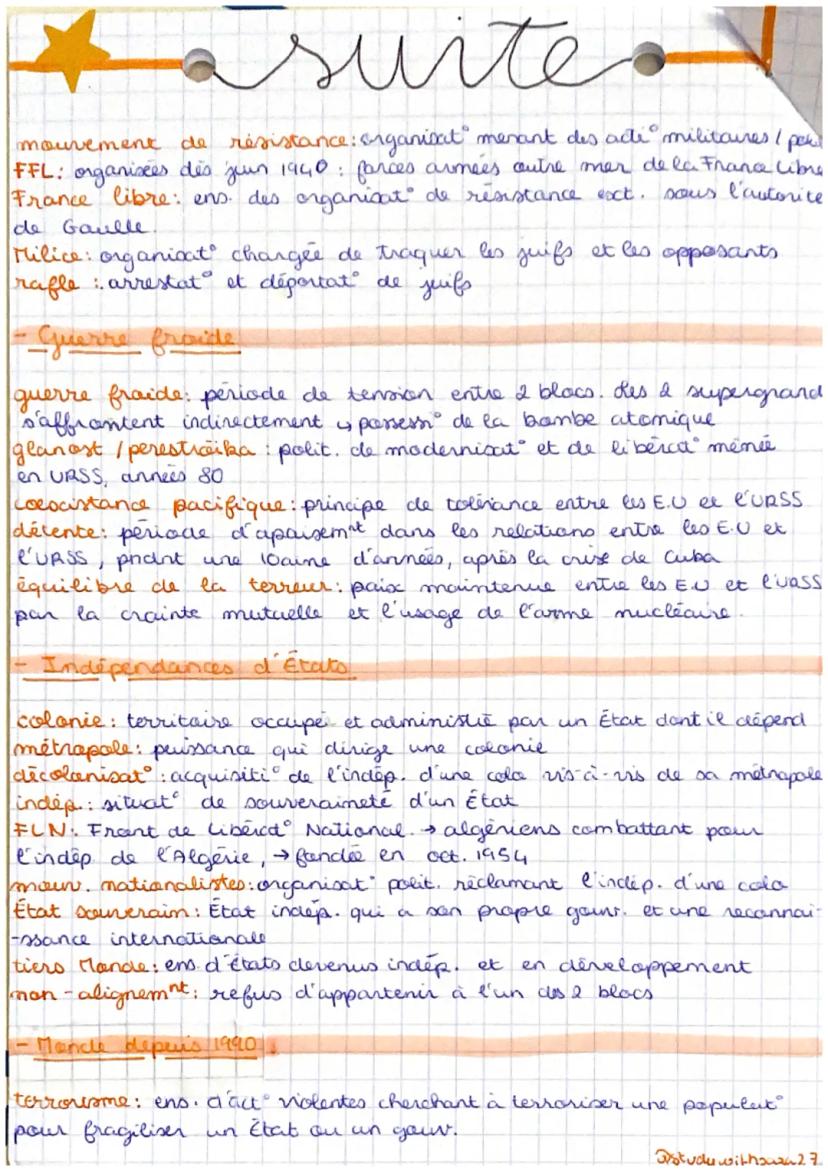 suite
mouvement de résistance: organisat° menant des acti° militaires /
FFL: organisées dès juin 1940 : forces armées outre mer de la France Libre
France libre: ens. des organisat° de résistance ext. sous l'autorité
de Gaulle.
Milice: organisat° chargée de traquer les juifs et les opposants
rafle : arrestat° et déportat° de juifs
- Guerre froide
guerre froide: période de tension entre 2 blocs. Les 2 supergrand
s'affrontent indirectement ↳ possess° de la bombe atomique
glanost / perestroïka : polit. de modernisat° et de libérat° ménée
en URSS, années 80
coexistance pacifique: principe de tolérance entre les E.U et l'URSS
détente: période d'apaisemnt dans les relations entre les E.U et
l'URSS, pndnt une 10aine d'années, après la crise de Cuba
équilibre de la terreur: paix maintenue entre les E.U et l'URSS
par la crainte mutuelle et l'usage de l'arme nucléaire.
- Indépendances d'États
colonie: territoire occupé et administré par un État dont il dépend
métropole: puissance qui dirige une colonie
décolonisat° : acquisiti° de l'indép. d'une colo vis-à-vis de sa métropole
indép.: situat° de souveraineté d'un État
FLN: Front de Libérat° National. → algériens combattant pour
l'indép de l'Algérie, → fondée en oct. 1954
mouv. nationalistes: organisat° polit. réclamant l'indép. d'une colo
État souverain: État indép. qui a son propre gouv. et une reconnai-
-ssance internationale
tiers Monde: ens. d'États devenus indép. et en développement
non-alignemnt: refus d'appartenir à l'un des 2 blocs
- Monde depuis 1990
terrorisme: ens. d'act° violentes cherchant à terroriser une populat°
pour fragiliser un État ou un gouv.